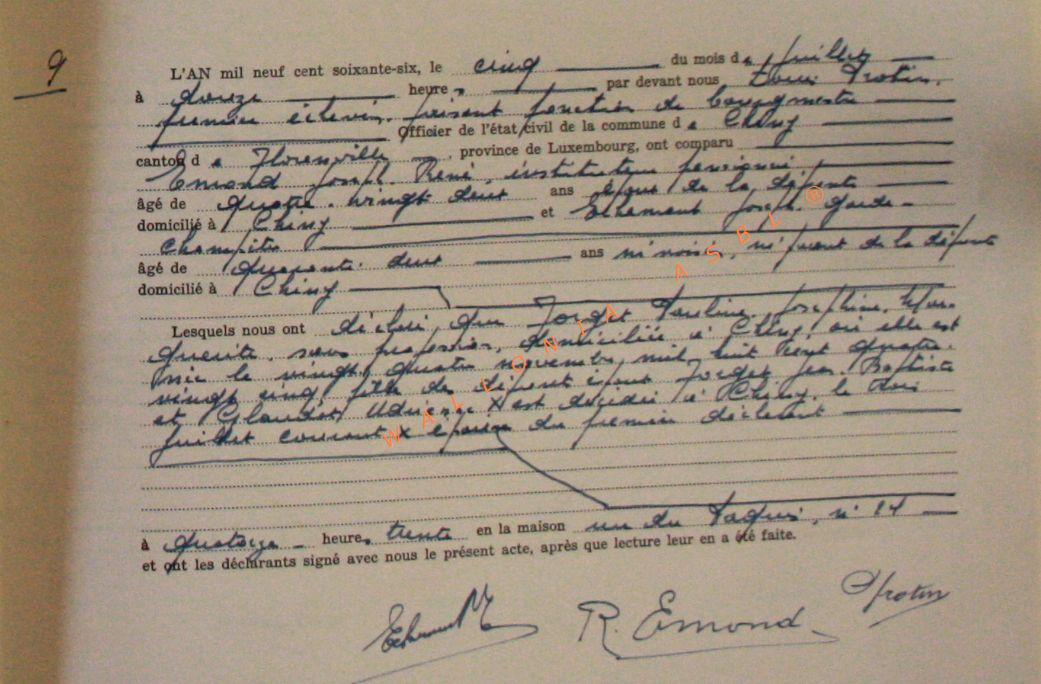 9
L'AN mil neuf cent soixante-six, le cinq du mois de juillet
à douze heures par devant nous Louis Protin,
premier échevin, faisant fonction de bourgmestre
Officier de l'état civil de la commune de Chiny
canton de Florenville, province de Luxembourg, ont comparu
Emond Joseph, René, instituteur pensionné,
âgé de quatre-vingt deux ans époux de la défunte
domicilié à Chiny et Joseph garde-
champêtre
âgé de quarante-deux ans ni voisin, ni parent de la défunte
domicilié à Chiny
Lesquels nous ont déclaré, que Forget Pauline, Joséphine, Mar-
guerite, sans profession, domiciliée à Chiny, où elle est
née le vingt quatre novembre mil huit cent quatre-
vingt cinq, fille de Forget Jean Baptiste
et est décédée à Chiny, le trois
juillet courant x épouse du premier déclarant
à quatorze heures trente en la maison rue du Paquis, n° 14
et ont les déclarants signé avec nous le présent acte, après que lecture leur en a été faite.
R. Emond
Protin
WALLONIA ASBL ®